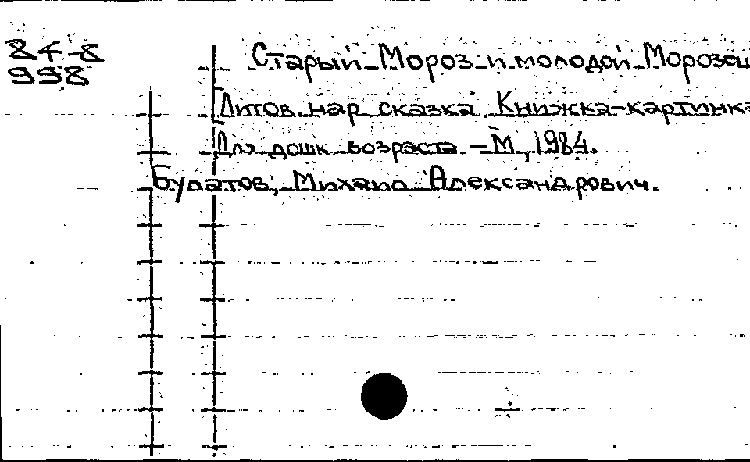 84-8
998
Старый Мороз и молодой Морозец
Литов. нар сказка Книжка-картинка
Для дошк возраста - М, 1984.
Булатов, Михаил Александрович.